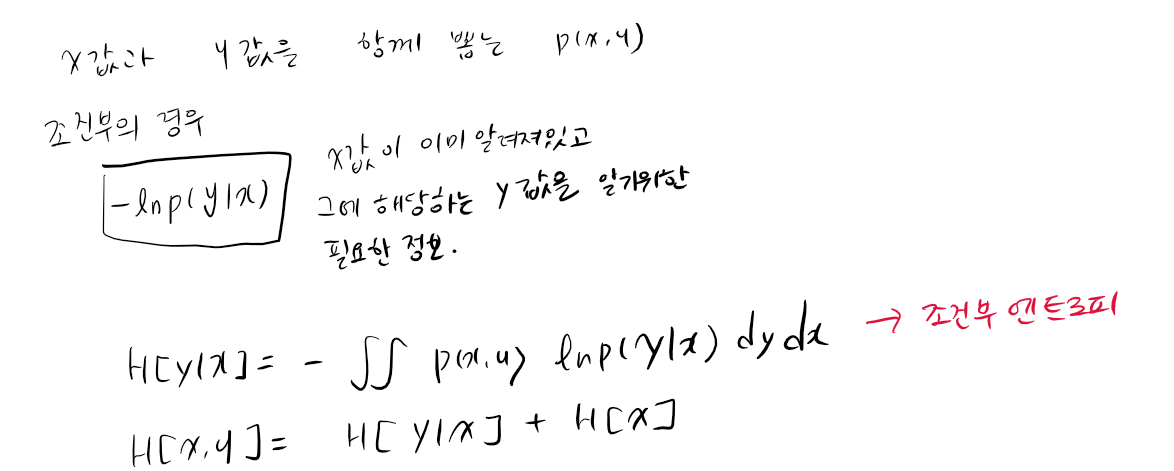 x값과 y값을 함께 뽑는 p(x,y)
조건부의 경우
-lnp(y|x)
x값이 이미 알려져있고
그에 해당하는 y값을 알기위한
필요한 정보.
H[y|x] = - ∬ p(x,y) lnp(y|x) dydx → 조건부 엔트로피
H[x,y] = H[y|x] + H[x]